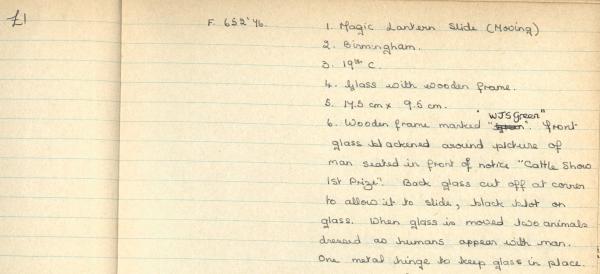 £1
F. 652'76.
1. Magic Lantern Slide (Moving)
2. Birmingham.
3. 19th C.
4. Glass with wooden frame.
5. 17.5 cm x 9.5 cm.
"WJS Green"
6. Wooden frame marked " ". Front
glass blackened around picture of
man seated in front of notice "Cattle Show
1st Prize". Back glass cut off at corner
to allow it to slide, black blot on
glass. When glass is moved two animals
dressed as humans appear with man.
One metal hinge to keep glass in place.